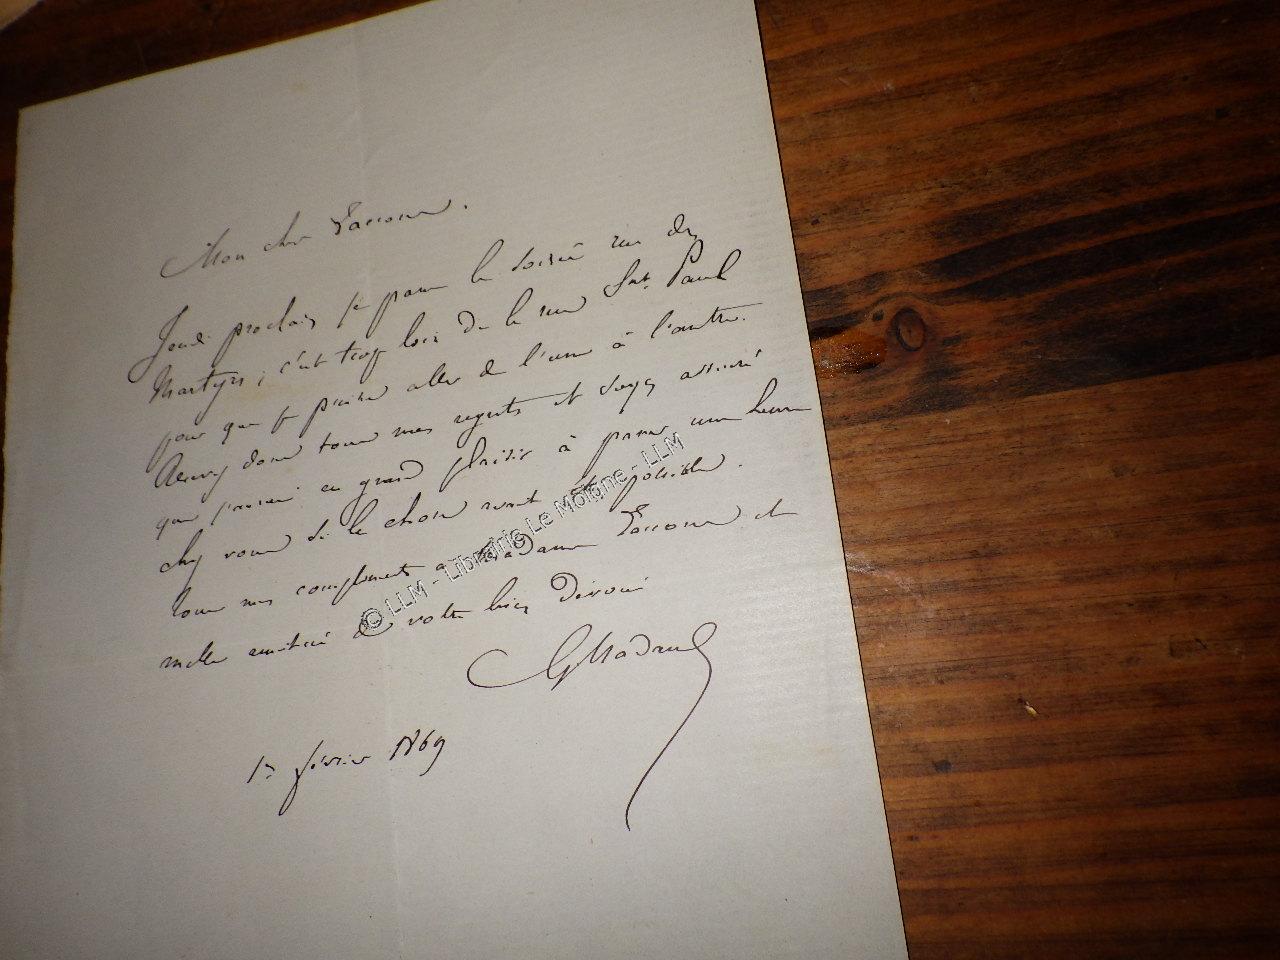 Mon cher
Jeudi prochain je passe la soirée rue des
Martyrs, c'est trop loin de la rue St. Paul
pour que je puisse aller de l'une à l'autre.
Recevez donc tous mes regrets et soyez assuré
que j'aurai un grand plaisir à passer une heure
chez vous si la chose avait été possible.
Tous mes compliments à Madame et
mille amitiés de votre bien dévoué
G Nadaud
1er février 1869
© LLM - Librairie Le Molène - LLM